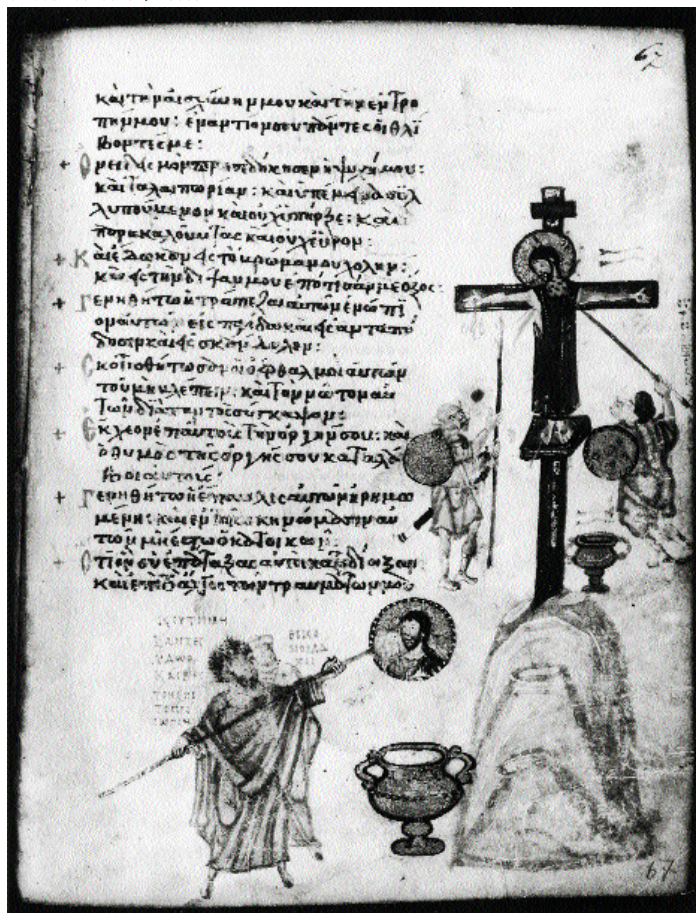 62
καὶ τὴν αἰσχύνην μου καὶ τὴν ἐντρο
πήν μου: ἐναντίον σου πάντες οἱ θλί
βοντές με:
+ Ὀνειδισμὸν προσεδόκησεν ἡ ψυχή μου:
καὶ ταλαιπωρίαν: καὶ ὑπέμεινα συλ
λυπούμενον καὶ οὐχ ὑπῆρξε: καὶ
παρακαλοῦντας καὶ οὐχ εὗρον:
+ Καὶ ἔδωκαν εἰς τὸ βρῶμά μου χολήν:
καὶ εἰς τὴν δίψαν μου ἐπότισάν με ὄξος:
+ Γενηθήτω ἡ τράπεζα αὐτῶν ἐνώπι
ον αὐτῶν εἰς παγίδα καὶ εἰς ἀνταπό
δοσιν καὶ εἰς σκάνδαλον:
+ Σκοτισθήτωσαν οἱ ὀφθαλμοὶ αὐτῶν
τοῦ μὴ βλέπειν: καὶ τὸν νῶτον αὐ
τῶν διὰ παντὸς σύγκαμψον:
+ Ἔκχεον ἐπ' αὐτοὺς τὴν ὀργήν σου: καὶ
ὁ θυμὸς τῆς ὀργῆς σου καταλά
βοι αὐτούς:
+ Γενηθήτω ἡ ἔπαυλις αὐτῶν ἠρημω
μένη: καὶ ἐν τοῖς σκηνώμασιν αὐ
τῶν μὴ ἔστω ὁ κατοικῶν:
+ Ὅτι ὃν σὺ ἐπάταξας αὐτοὶ κατεδίωξαν
καὶ ἐπὶ τὸ ἄλγος τῶν τραυμάτων μου
67